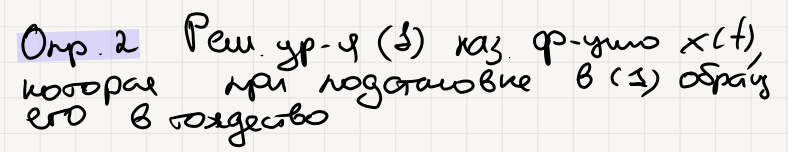 Опр. 2 Реш. ур-я (1) наз. ф-цию x(t),
которая при подстановке в (1) обращ
его в тождество